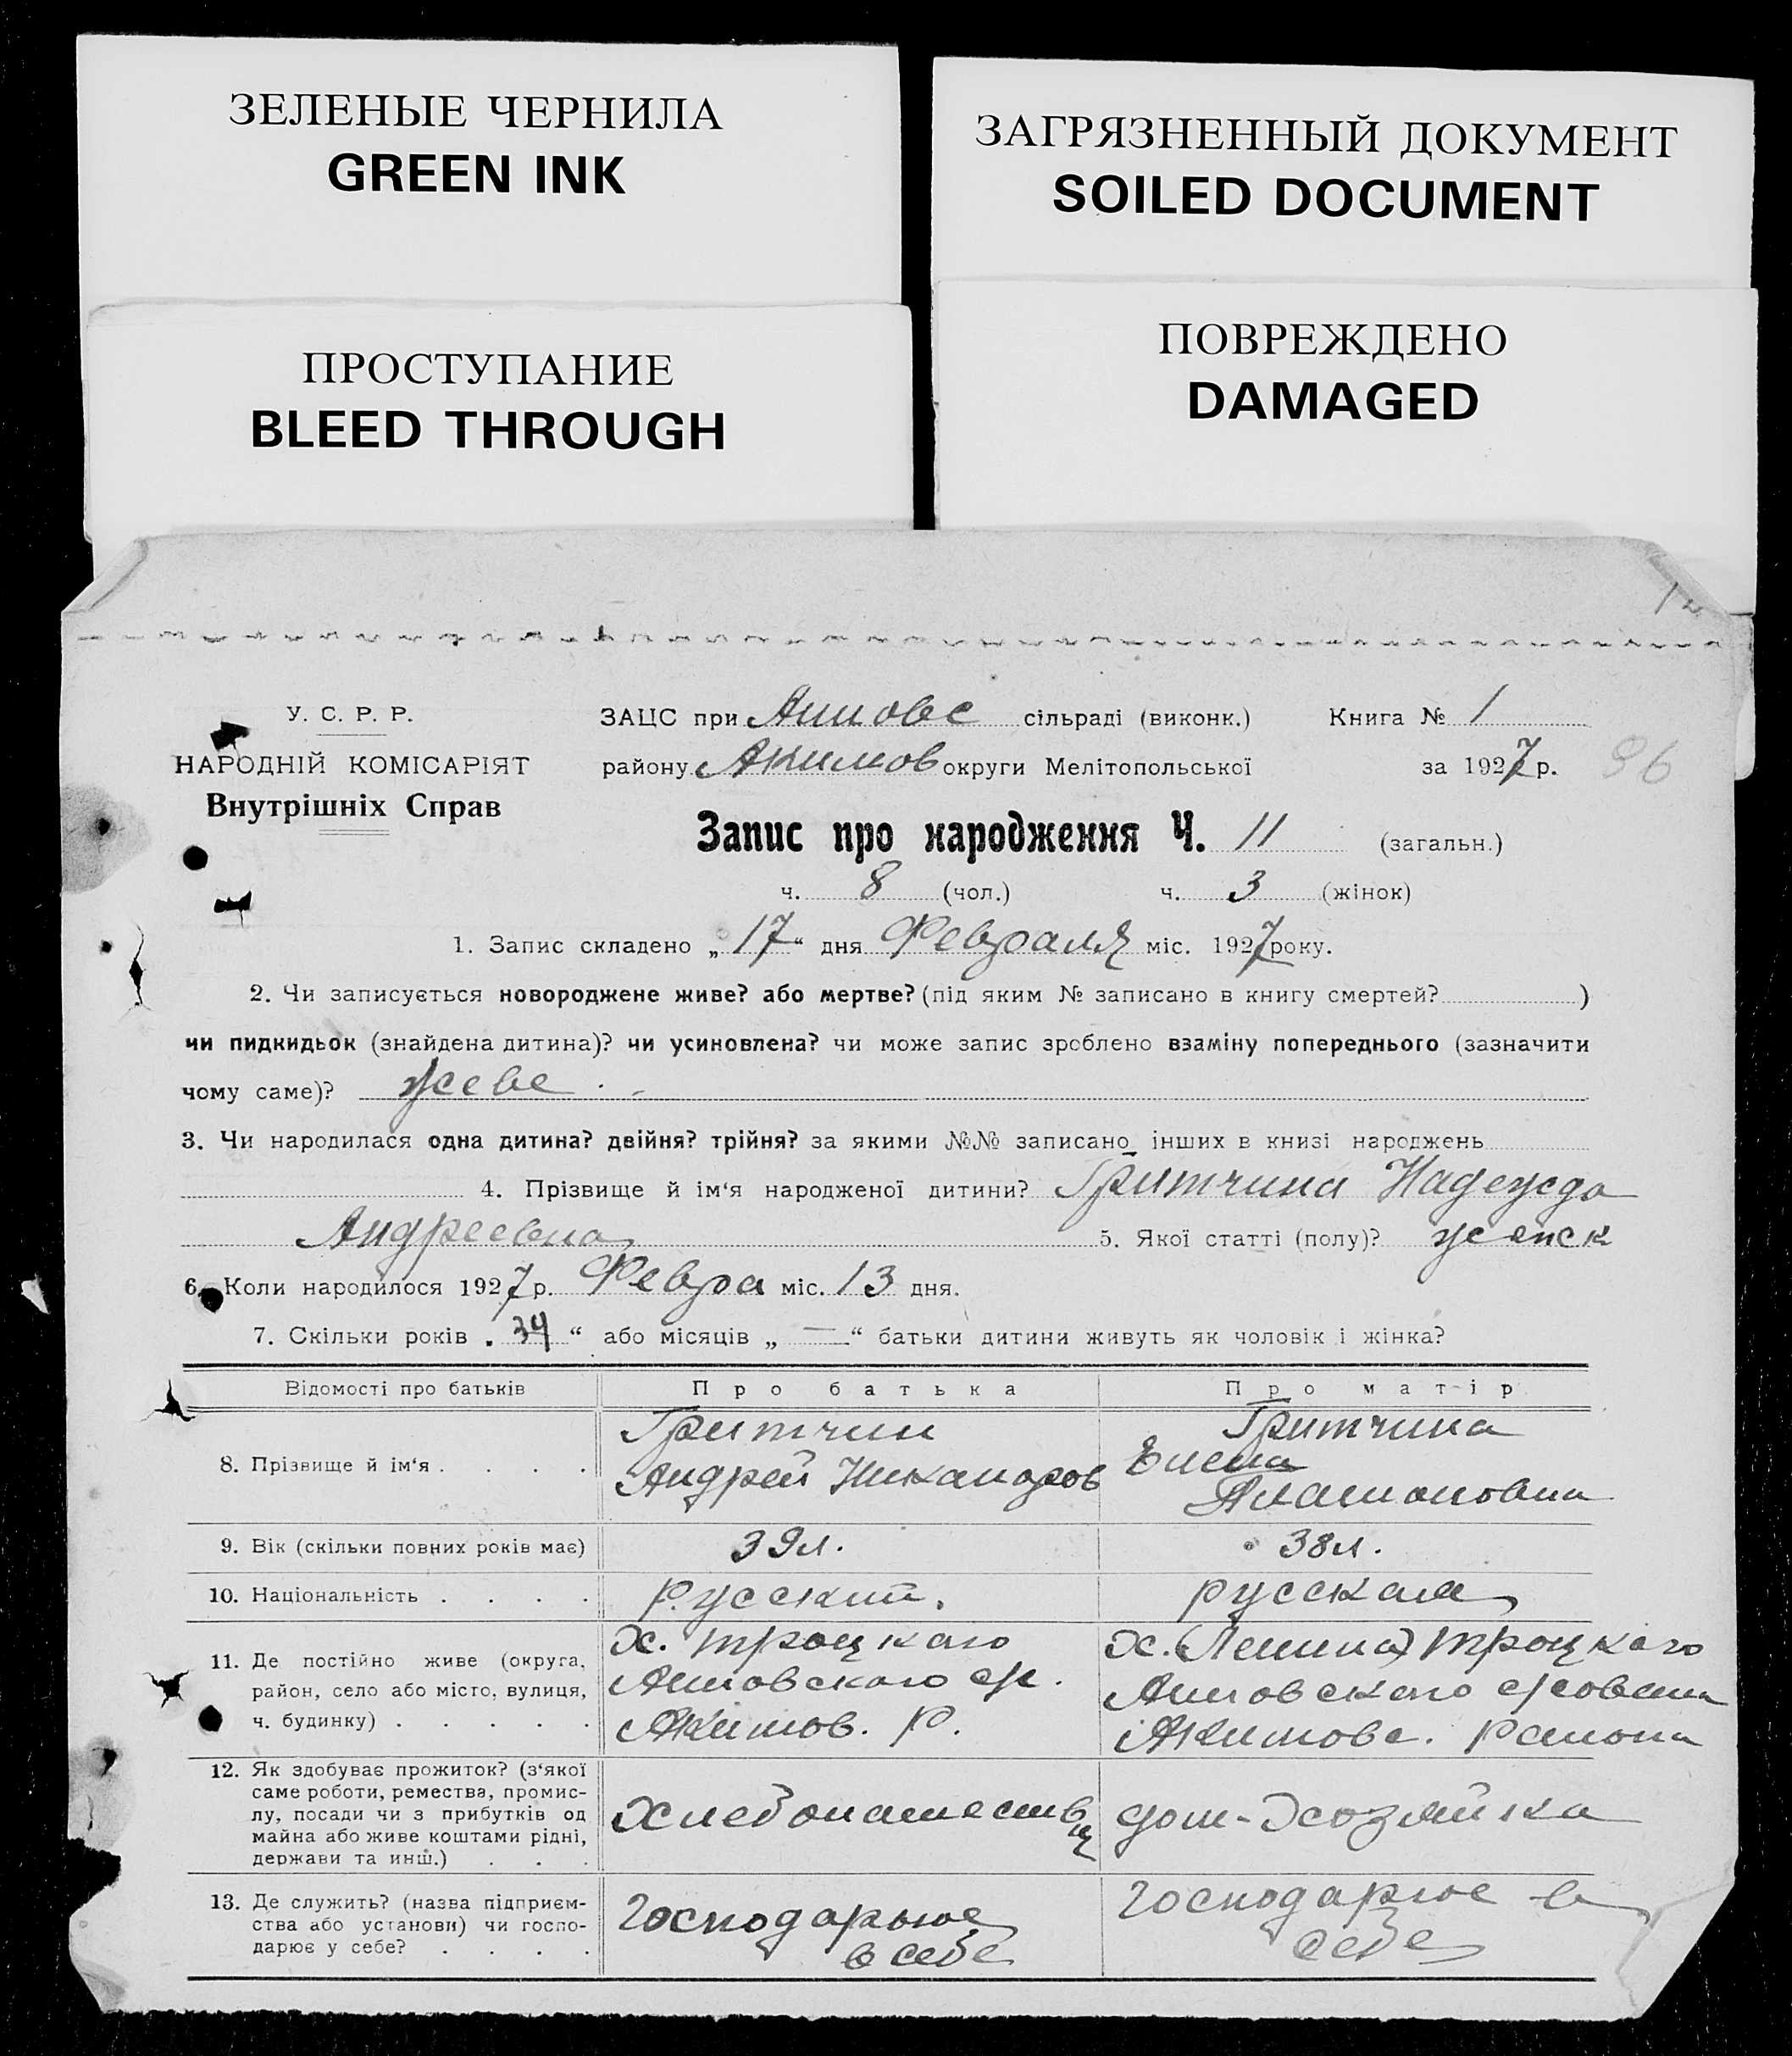 ЗЕЛЕНЫЕ ЧЕРНИЛА
GREEN INK
ЗАГРЯЗНЕННЫЙ ДОКУМЕНТ
SOILED DOCUMENT
ПРОСТУПАНИЕ
BLEED THROUGH
ПОВРЕЖДЕНО
DAMAGED
У. С. Р. Р.
НАРОДНІЙ КОМІСАРІЯТ
Внутрішніх Справ
ЗАЦС при сільраді (виконк.) Книга № 1
району Акимов округи Мелітопольської за 1927 р. 96
Запис про народження Ч. 11 (загальн.)
ч. 8 (чол.) ч. 3 (жінок)
1. Запис складено „17“ дня Февраля міс. 1927 року.
2. Чи записується новороджене живе? або мертве? (під яким № записано в книгу смертей? )
чи пидкидьок (знайдена дитина)? чи усиновлена? чи може запис зроблено взаміну попереднього (зазначити
чому саме)? живе
3. Чи народилася одна дитина? двійня? трійня? за якими №№ записано інших в книзі народжень
4. Прізвище й ім'я народженої дитини? Гритчина Надежда
Андреевна 5. Якої статті (полу)? женск
6. Коли народилося 1927 р. Февра міс. 13 дня.
7. Скільки років „ “ або місяців „ — “ батьки дитини живуть як чоловік і жінка?
Відомості про батьків Про батька Про матір
8. Прізвище й ім'я Гритчин
Андрей Никаноров
Гритчина
Елена
9. Вік (скільки повних років має) 39 л. 38 л.
10. Національність русский. русская
11. Де постійно живе (округа,
район, село або місто, вулиця,
ч. будинку)
х. Троцкаго
Акимов. р.
х. (Ленина) Троцкаго
Акимовс. района
12. Як здобуває прожиток? (з'якої
саме роботи, ремества, промис-
лу, посади чи з прибутків од
майна або живе коштами рідні,
держави та инш.)
Хлебопашеств
дом-хозяйка
13. Де служить? (назва підприєм-
ства або установи) чи госпо-
дарює у себе?
Господарює
в себе
Господарює в
себе